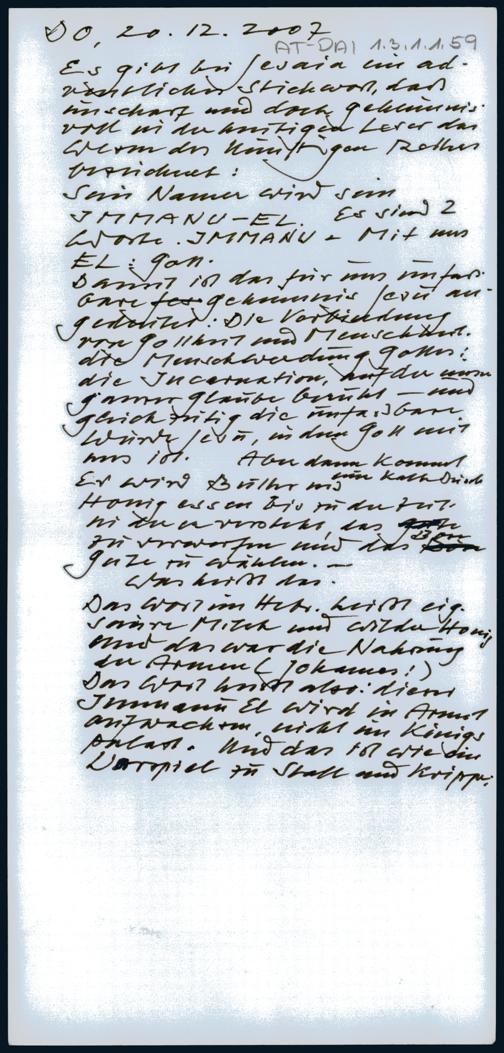 DO, 20.12.2007
AT-DAI 1.3.1.1.59
Es gibt bei Jesaia ein ad-
ventliches Stichwort, das
unscharf und doch geheimnis-
voll in der heutigen Lesung das
Wesen des künftigen Retters
bezeichnet:
Sein Name wird sein
IMMANU-EL. Es sind 2
Worte. IMMANU - Mit uns
EL: Gott.
Damit ist das für uns unfass-
bare Geheimnis Jesu an-
gedeutet: Die Verbindung
von Gottheit und Menschheit.
die Menschwerdung Gottes:
die Incarnation, auf der unser
ganzer Glaube beruht – und
gleichzeitig die unfassbare
Würde Jesu, in dem Gott mit
uns ist. Aber dann kommt
Er wird Butter und
Honig essen bis zu der Zeit
in der er versteht, das Böse
zu verwerfen und das
Gute zu wählen. –
Was heißt das.
Das Wort im Hebr. heißt eig.
saure Milch und wilder Honig
und das war die Nahrung
der Armen (Johannes!)
Das Wort heißt also: dieser
Immanu El wird in Armut
aufwachsen, nicht im Königs
palast. Und das ist wie ein
Vorspiel zu Stall und Krippe.